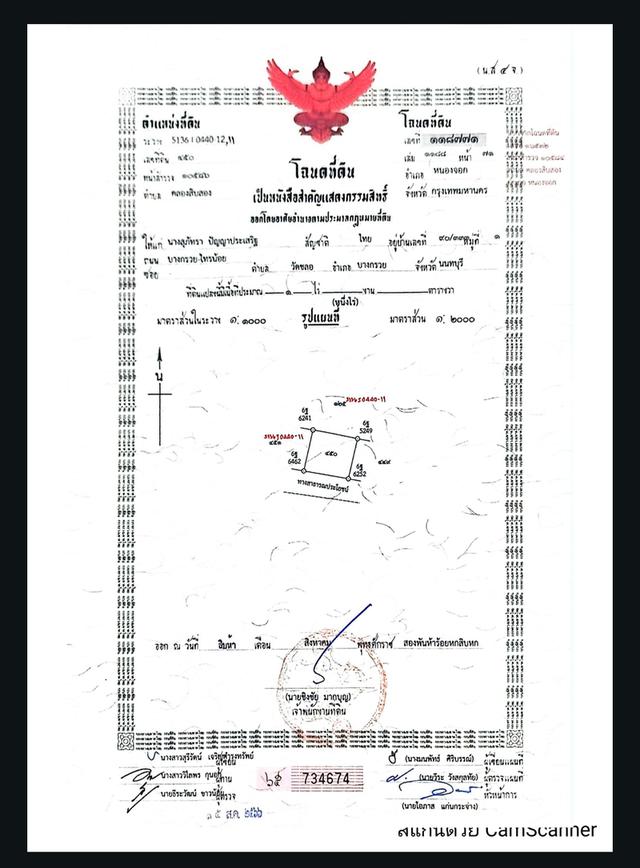 (น.ส ๔ จ)
ตำแหน่งที่ดิน
ระวาง 5136 I 0440-12,11
เลขที่ดิน ๔๕๐
หน้าสำรวจ ๑๐๕๘๖
ตำบล คลองสิบสอง
โฉนดที่ดิน
เลขที่ ๑๑๘๗๗๑
เล่ม ๑๑๘๘ หน้า ๗๑
อำเภอ หนองจอก
จังหวัด กรุงเทพมหานคร
โฉนดที่ดิน
เป็นหนังสือสำคัญแสดงกรรมสิทธิ์
ออกโดยอาศัยอำนาจตามประมวลกฎหมายที่ดิน
ให้แก่ นางสุภัทรา ปัญญาประเสริฐ สัญชาติ ไทย อยู่บ้านเลขที่ หมู่ที่ ๑
ถนน บางกรวย-ไทรน้อย
ซอย ตำบล วัดชลอ อำเภอ บางกรวย จังหวัด นนทบุรี
ที่ดินแปลงนี้มีเนื้อที่ประมาณ ๑ ไร่ งาน ตารางวา
(หนึ่งไร่)
มาตราส่วนในระวาง ๑:๑๐๐๐ รูปแผนที่ มาตราส่วน ๑:๒๐๐๐
น
6241
5249
๔๕๑
๔๕๐
๔๔๙
6462
6252
ทางสาธารณประโยชน์
ออก ณ วันที่ สิบห้า เดือน สิงหาคม พุทธศักราช สองพันห้าร้อยหกสิบหก
(นายชิงชัย มากบุญ)
เจ้าพนักงานที่ดิน
นางสาวสุริรัตน์ เจริญดำรงทรัพย์ ผู้เขียน
นางสาววิไลพร ผู้ทาน
นายธีระวัฒน์ ผู้ตรวจ
๑๕ ส.ค. ๒๕๖๖
734674
(นางนนพัทธ์ ศิริบรรณ์) ผู้เขียนแผนที่
(นายวีระ วังสกุลทัย) ผู้ตรวจแผนที่
หัวหน้าการ
(นายโอภาส แก่นกระจ่าง)
สแกนด้วย CamScanner